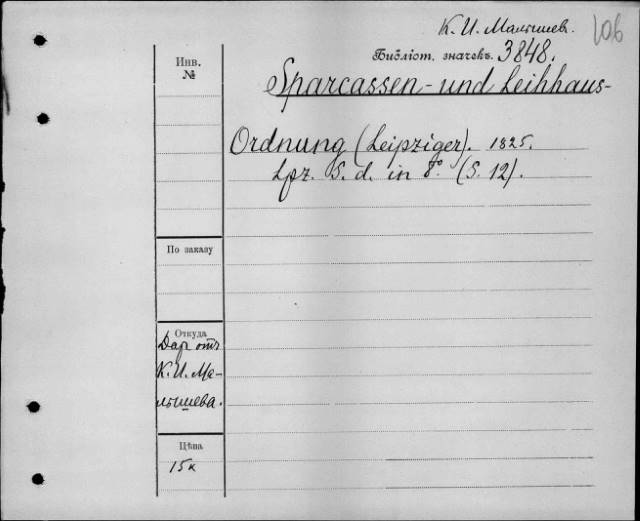 К. И. Малышев.
106
Библіот. значекъ. 3848.
Инв.
№
Sparcassen- und Leihhaus-
Ordnung (Leipziger). 1825.
Lpz. S. d. in 8°. (S. 12).
По заказу
Откуда
Дар отъ
К. И. Ма-
лышева.
Цѣна
15 к